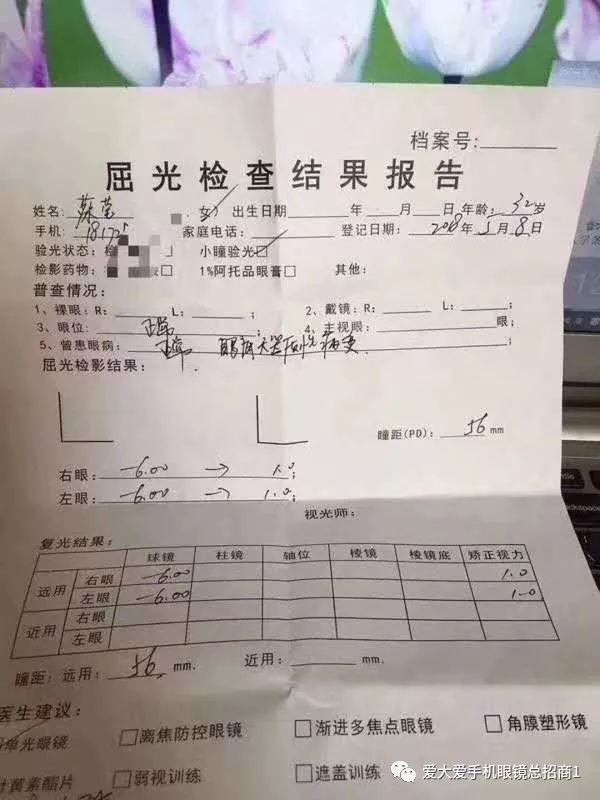 档案号:
屈光检查结果报告
姓名: 女) 出生日期 年 月 日 年龄: 32岁
手机: 18172 家庭电话: 登记日期: 2018年5月8日
验光状态: 小瞳验光□
检影药物: □ 1%阿托品眼膏□ 其他:
普查情况:
1、裸眼: R: L: ; 2、戴镜: R: L: ;
3、眼位: 正常 ; 4、主视眼: 眼;
5、曾患眼病: 正常 眼底 病变
屈光检影结果:
瞳距(PD): 56 mm
右眼: -6.00 → 1.0 ;
左眼: -6.00 → 1.0 ;
视光师:
复光结果:
球镜 柱镜 轴位 棱镜 棱镜底 矫正视力
远用 右眼 -6.00 1.0
左眼 -6.00 1.0
近用 右眼
左眼
瞳距: 远用: 56 mm. 近用: mm.
医生建议:
单光眼镜 □离焦防控眼镜 □渐进多焦点眼镜 □角膜塑形镜
叶黄素酯片 □弱视训练 □遮盖训练
爱大爱手机眼镜总招商1
backspace